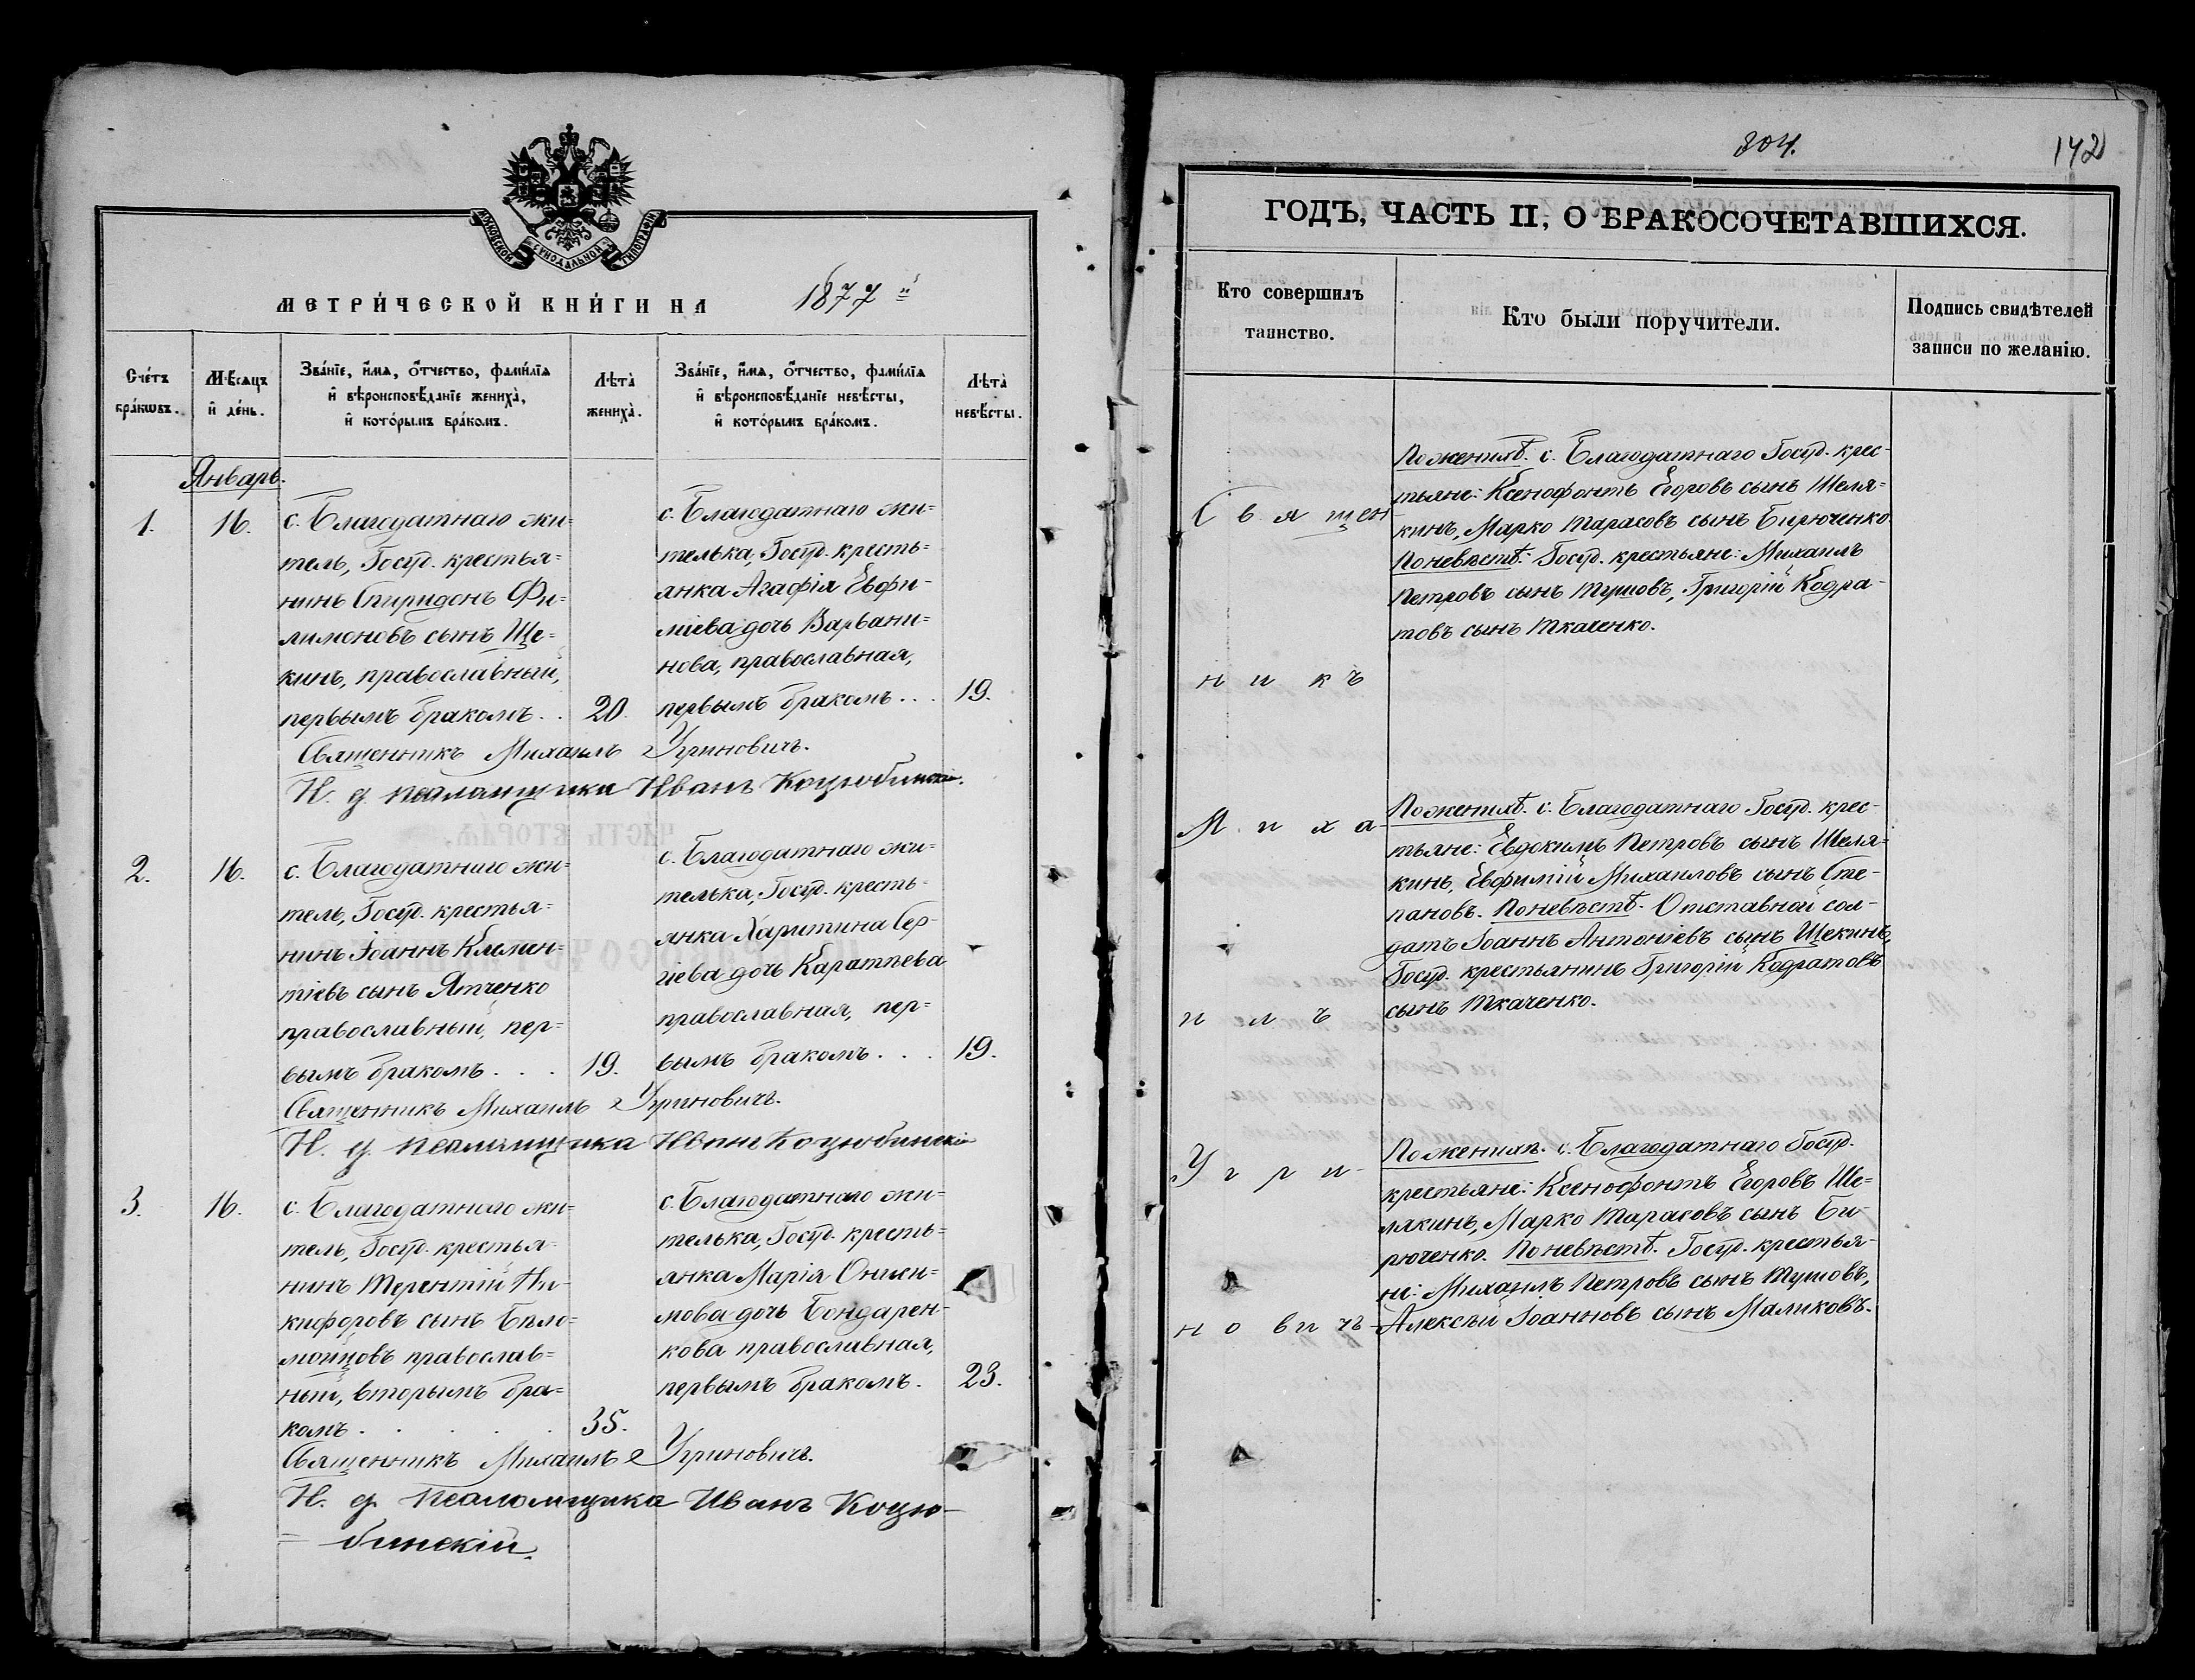 МОСКОВСКОЙ СѴНОДАЛЬНОЙ ТИПОГРАФІИ
МЕТРИ́ЧЕСКОЙ КНИ́ГИ НА 1877 й
Сче́тъ
бра́кωвъ.
Мѣсяцъ
и҆ де́нь.
Зва́нїе, и҆́мѧ, о҆́тчество, фами́лїѧ
и҆ вѣроисповѣ́данїе жениха̀,
и҆ кото́рымъ бра́комъ.
Лѣта̀
жениха̀.
Зва́нїе, и҆́мѧ, о҆́тчество, фами́лїѧ
и҆ вѣроисповѣ́данїе невѣ́сты,
и҆ кото́рымъ бра́комъ.
Лѣта̀
невѣ́сты.
Январь.
1.
16.
с. Благодатнаго жи=
тель, Госуд. крестья=
нинъ Спиридонъ Фи=
лимоновъ сынъ Ще=
кинъ, православный,
первымъ бракомъ . .
20.
с. Благодатнаго жи=
телька, Госуд. кресть=
янка Агафія Евфи-
міева дочь Варвани=
нова, православная,
первымъ бракомъ . . .
19.
Священникъ Михаилъ Угриновичъ.
И. д. псаломщика Иванъ Коцюбинскій.
2.
16.
с. Благодатнаго жи=
тель, Госуд. крестья=
нинъ Іоаннъ Климен=
тіевъ сынъ Ятченко
православный, пер=
вымъ бракомъ . . .
19.
с. Благодатнаго жи=
телька, Госуд. кресть-
янка Харитина Сер-
гіева дочь Каратѣева
православная, пер=
вымъ бракомъ . . .
19.
Священникъ Михаилъ Угриновичъ.
И. д. псаломщика Иванъ Коцюбинскій
3.
16.
с. Благодатнаго жи=
тель, Госуд. крестья-
нинъ Терентій Ни-
кифоровъ сынъ Бѣло=
мойцовъ православ=
ный, вторымъ бра=
комъ . . . . .
35.
с. Благодатнаго жи=
телька, Госуд. кресть=
янка Марія Ониси=
мова дочь Бондарен-
кова православная,
первымъ бракомъ.
23.
Священникъ Михаилъ Угриновичъ.
И. д. Псаломщика Иванъ Коцю-
= бинскій.
304.
142
ГОДЪ, ЧАСТЬ II, О БРАКОСОЧЕТАВШИХСЯ.
Кто совершилъ
таинство.
Кто были поручители.
Подпись свидѣтелей
записи по желанію.
Священ-
никъ
Миха-
илъ
Угри-
новичъ
По женихѣ. с. Благодатнаго Госуд. крес-
тьяне: Ксенофонтъ Егоровъ сынъ Шеля=
кинъ, Марко Тарасовъ сынъ Бирюченко.
По невѣстѣ: Госуд. крестьяне: Михаилъ
Петровъ сынъ Тушовъ, Григорій Кодра-
товъ сынъ Ткаченко.
По женихѣ. с. Благодатнаго Госуд. крес-
тьяне: Евдокимъ Петровъ сынъ Шеля=
кинъ, Евфимій Михаиловъ сынъ Сте-
пановъ. По невѣстѣ. Отставной сол-
датъ Іоаннъ Антоніевъ сынъ Щекинъ,
Госуд. крестьянинъ Григорій Кодратовъ
сынъ Ткаченко.
По женихѣ. с. Благодатнаго Госуд.
крестьяне: Ксенофонтъ Егоровъ Ше=
лякинъ, Марко Тарасовъ сынъ Би-
рюченко. По невѣстѣ. Госуд. крестья-
не: Михаилъ Петровъ сынъ Тушовъ,
Алексѣй Іоанновъ сынъ Маликовъ.